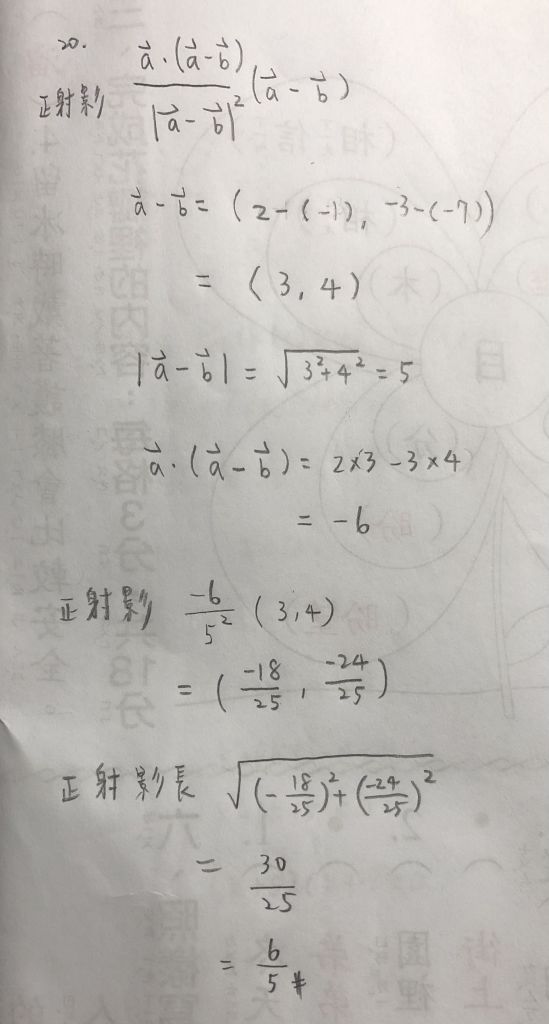 20.
正射影 \frac{\vec{a}\cdot(\vec{a}-\vec{b})}{|\vec{a}-\vec{b}|^2}(\vec{a}-\vec{b})
\vec{a}-\vec{b}=(2-(-1),-3-(-7))
=(3,4)
|\vec{a}-\vec{b}|=\sqrt{3^2+4^2}=5
\vec{a}\cdot(\vec{a}-\vec{b})=2×3-3×4
=-6
正射影 \frac{-6}{5^2}(3,4)
=(\frac{-18}{25},\frac{-24}{25})
正射影長 \sqrt{(-\frac{18}{25})^2+(\frac{-24}{25})^2}
=\frac{30}{25}
=\frac{6}{5}#